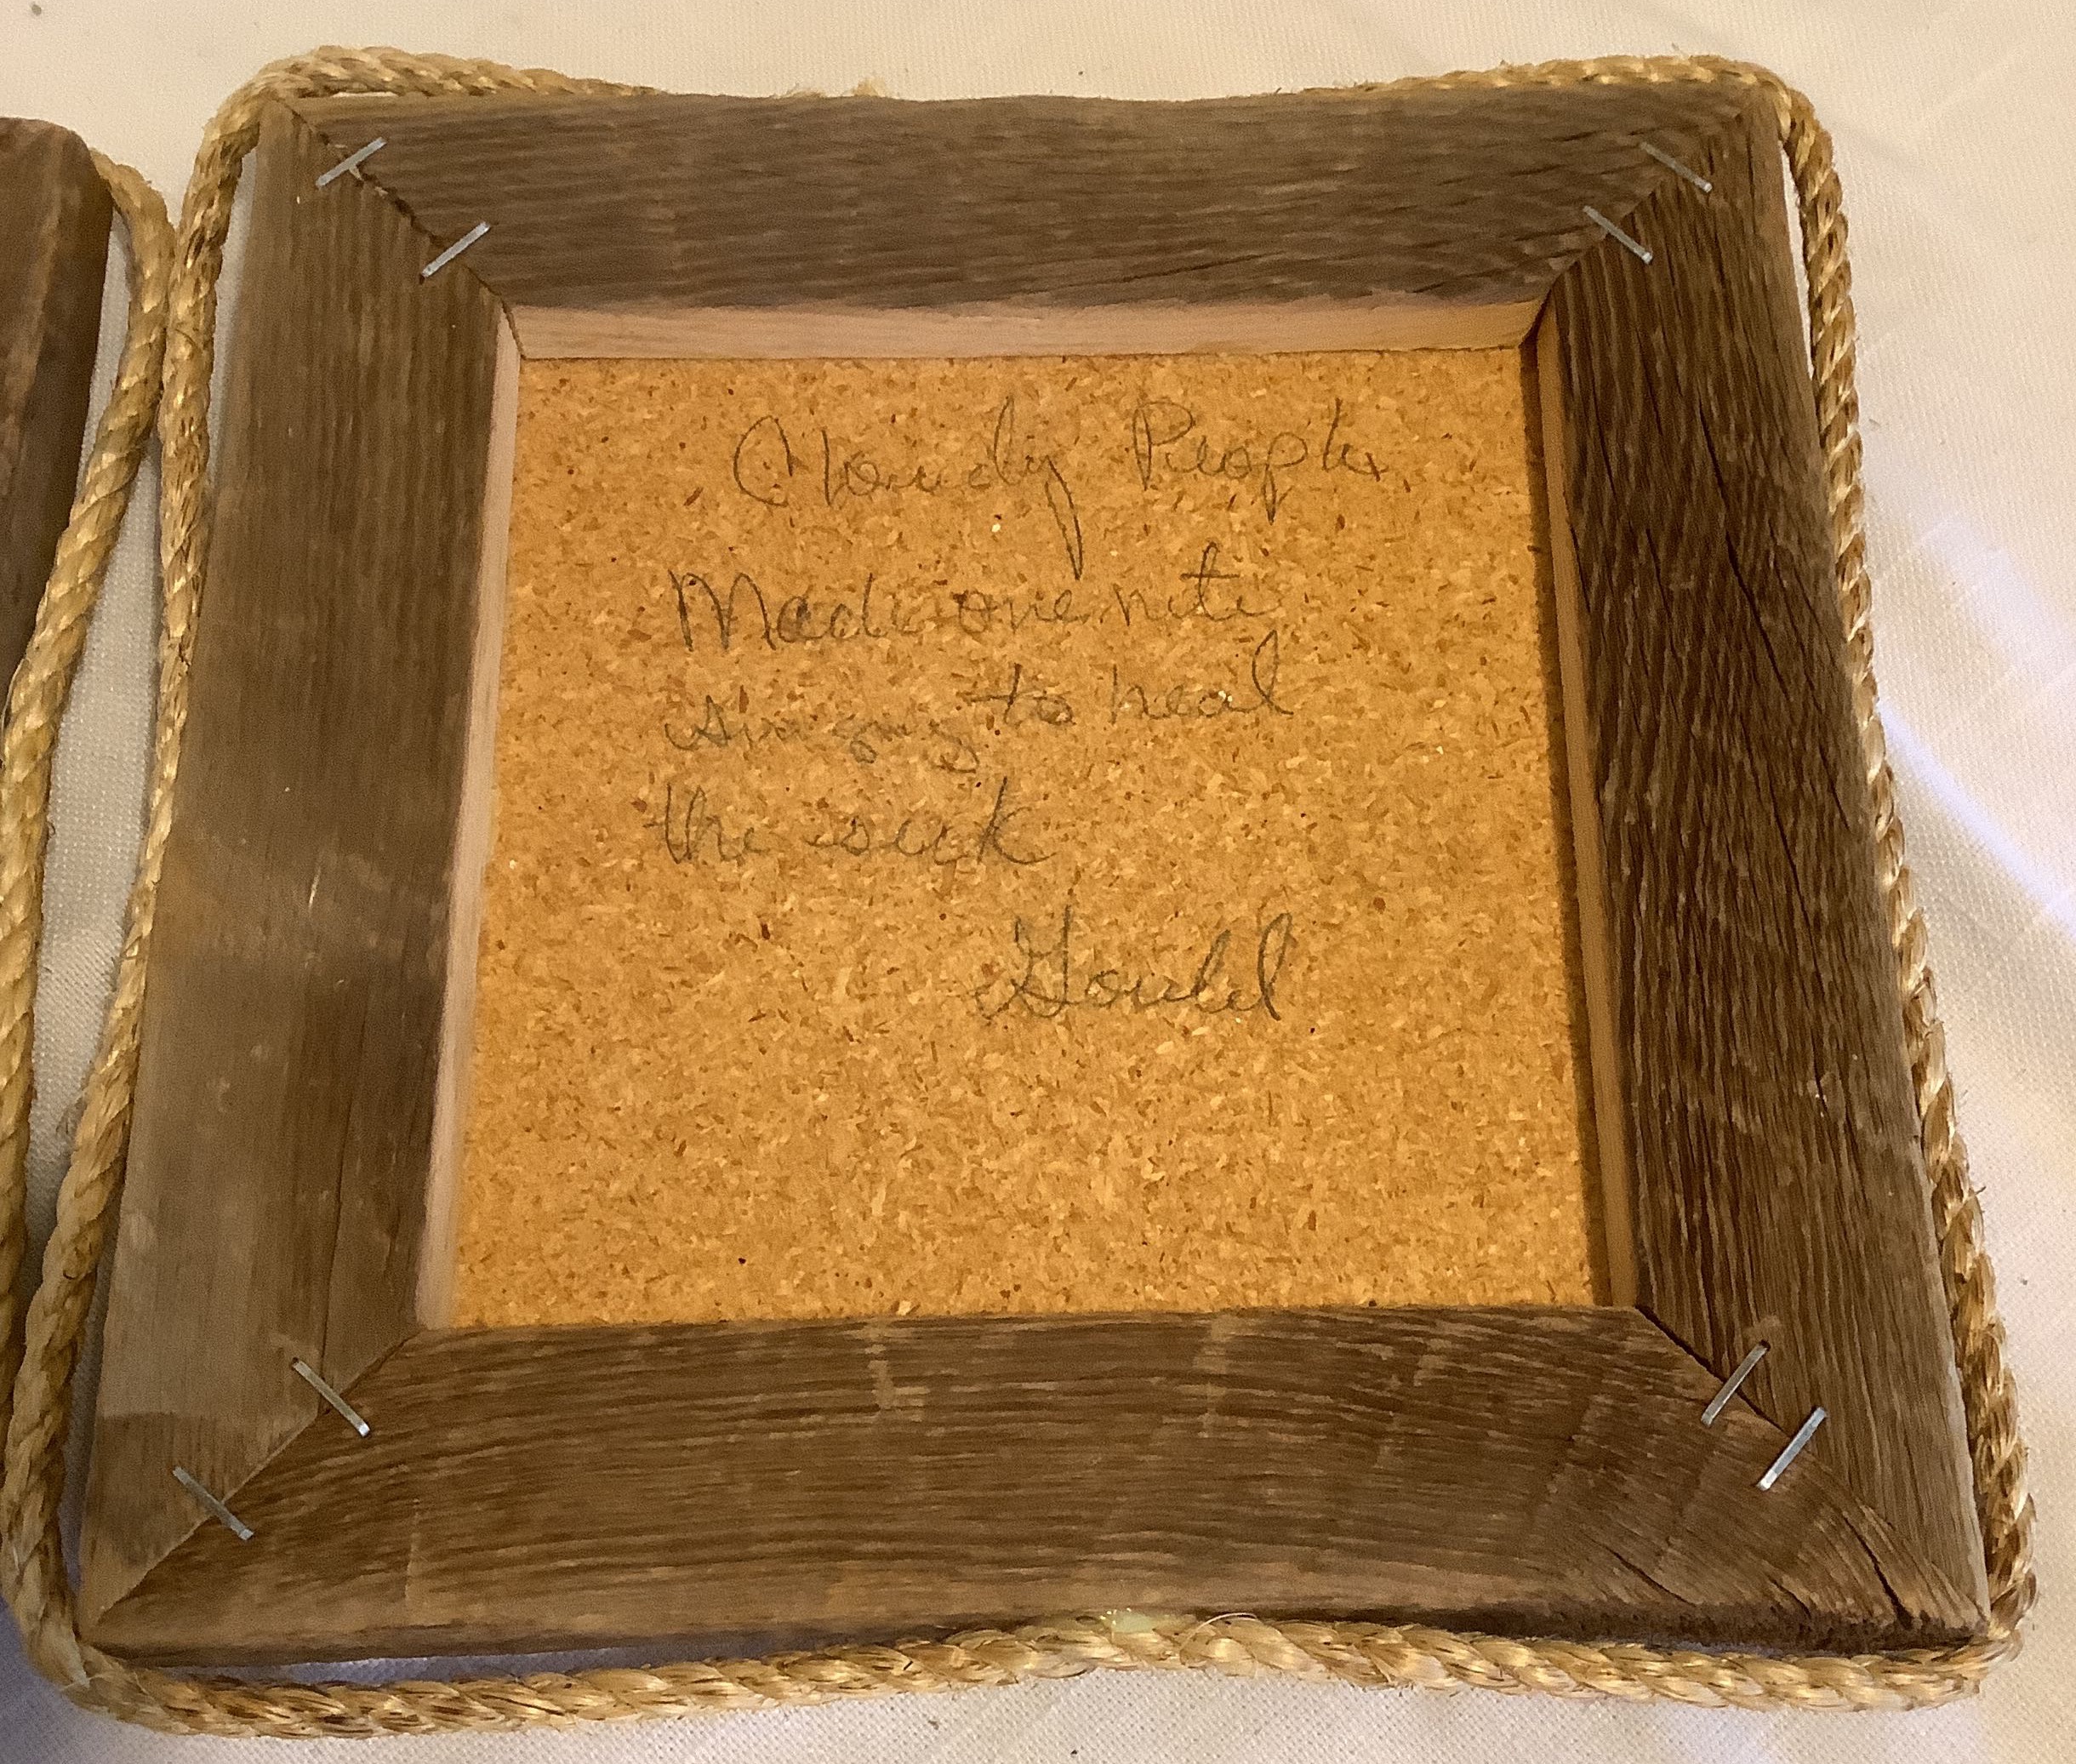 Cloudy People
Made one nite
sin gs to heal
the sick
Gould